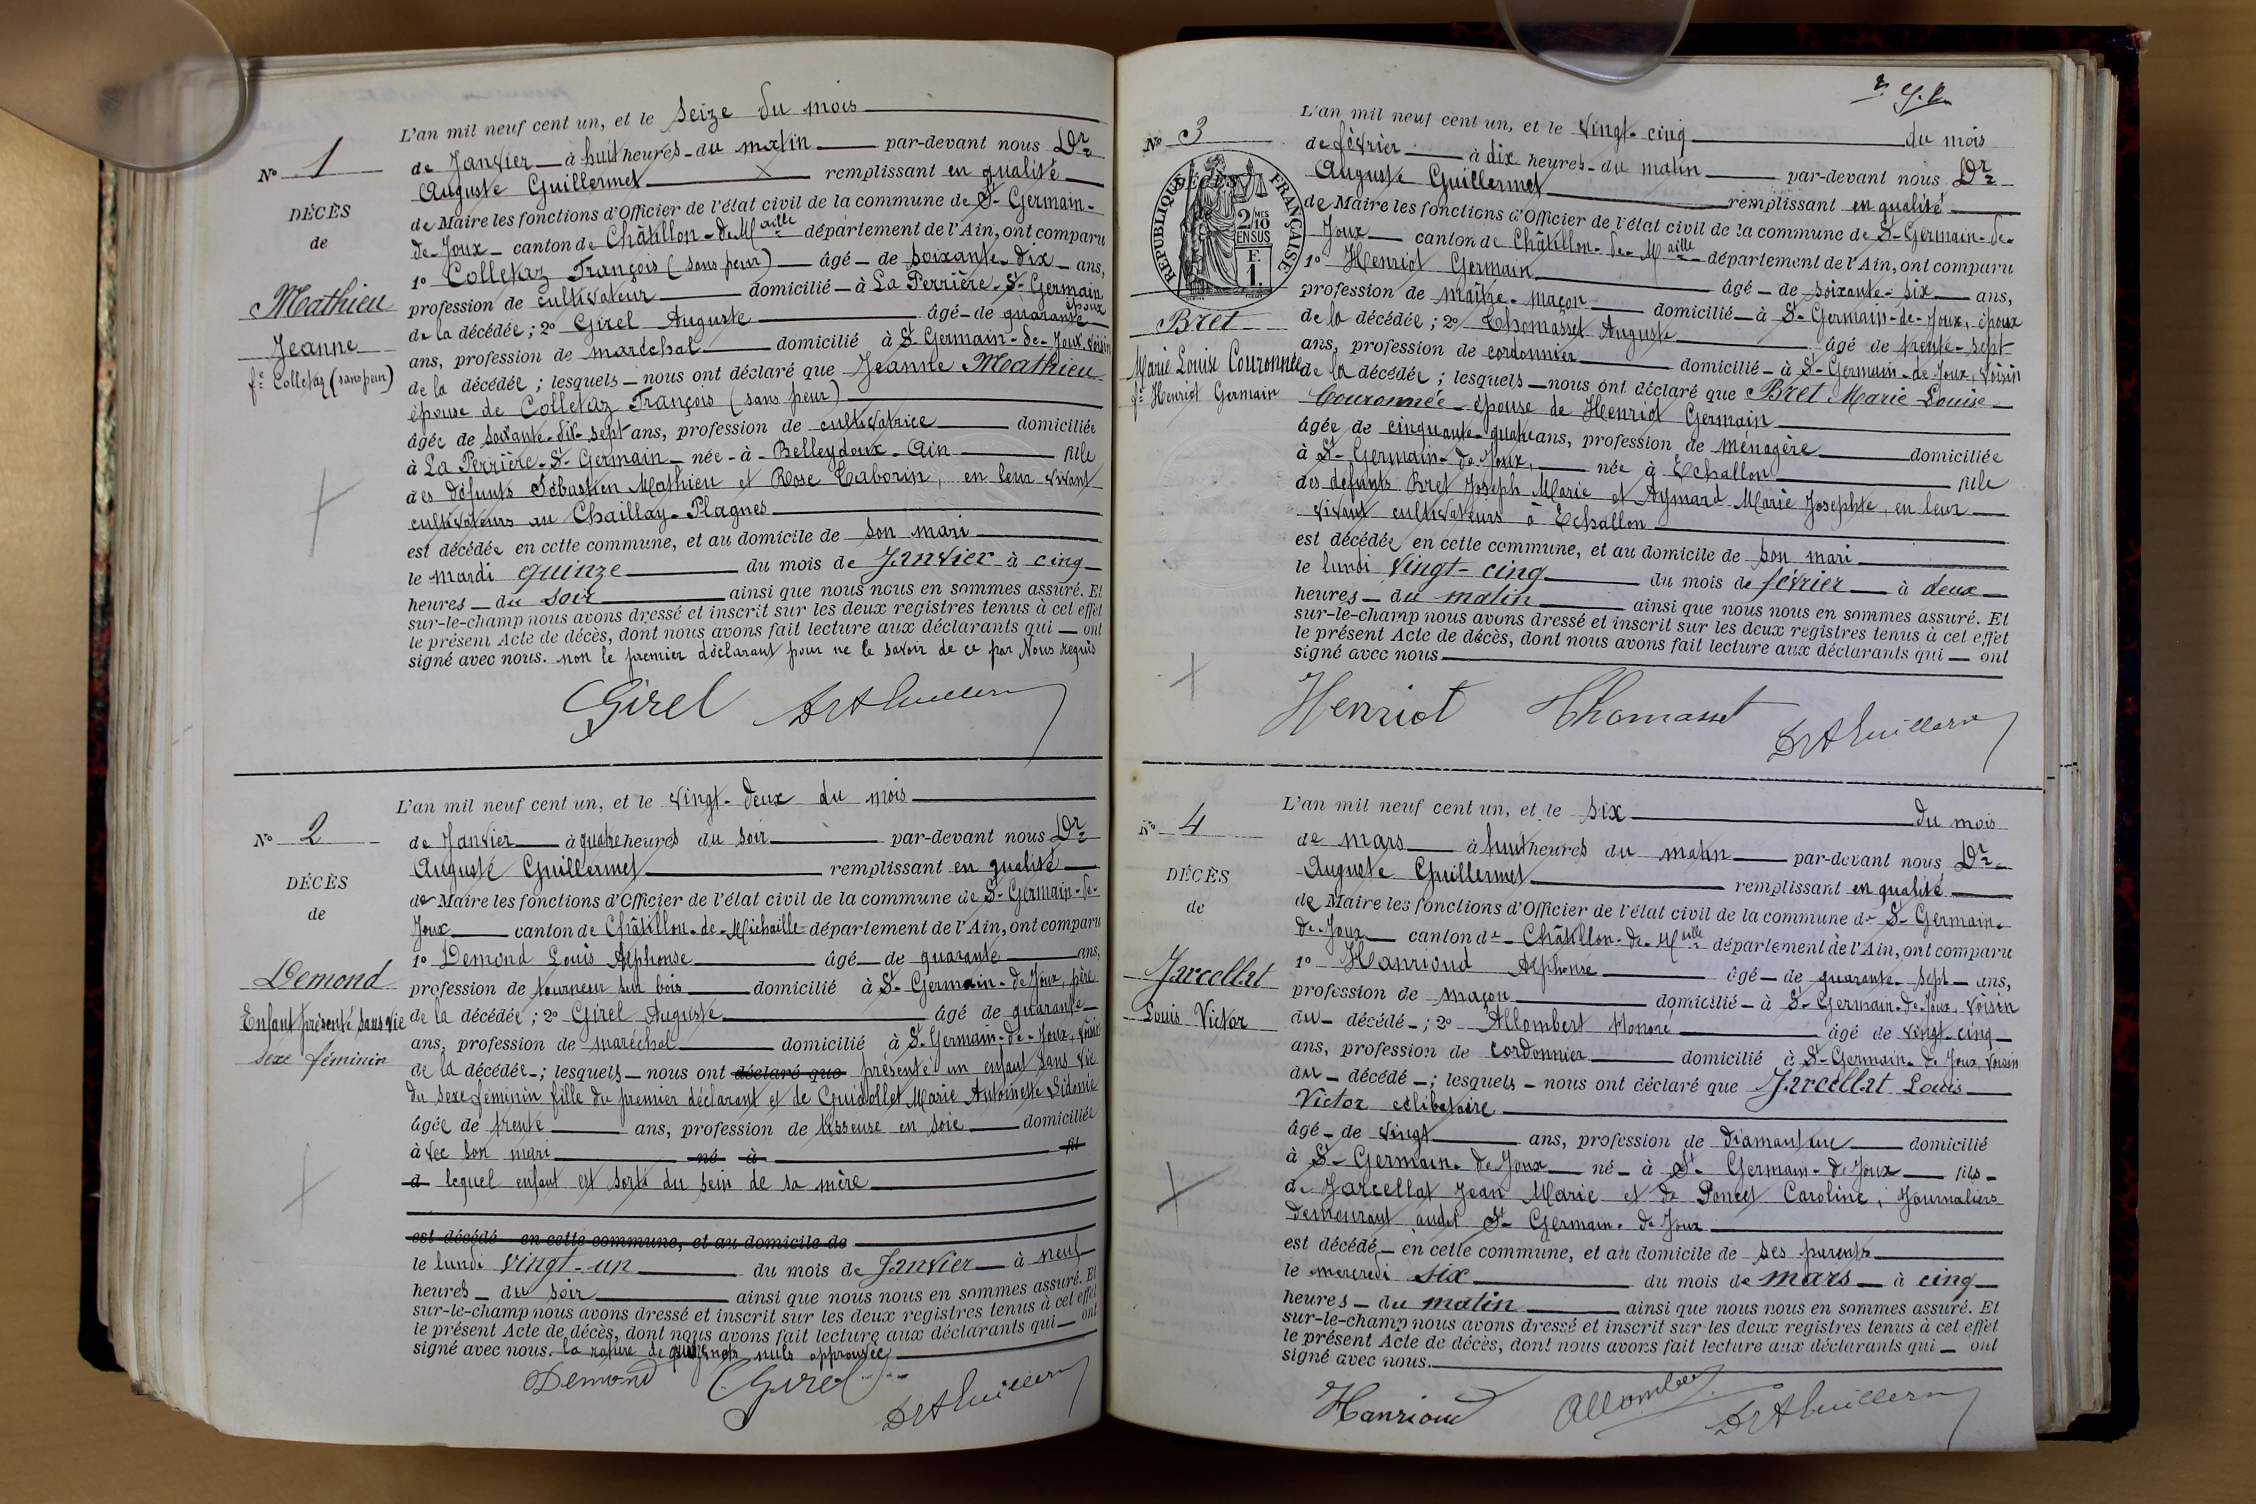 L'an mil neuf cent un, et le seize du mois
N° 1
de Janvier à huit heures du matin par-devant nous Dr
Auguste Guillermet remplissant en qualité
DÉCÈS
de Maire les fonctions d'Officier de l'état civil de la commune de St Germain-
de
de-Joux canton de Châtillon-de-Maille département de l'Ain, ont comparu
1° Colletaz François (sans peur) âgé de soixante-dix ans,
Mathieu
profession de cultivateur domicilié à La Perrière-St Germain époux
de la décédée; 2° Girel Auguste âgé de quarante
Jeanne
ans, profession de maréchal domicilié à St Germain-de-Joux, voisin
fe Colletaz (sans peur)
de la décédée; lesquels nous ont déclaré que Jeanne Mathieu
épouse de Colletaz François (sans peur)
âgée de soixante-dix-sept ans, profession de cultivatrice domiciliée
à La Perrière-St Germain née à Belleydoux-Ain fille
des défunts Sébastien Mathieu et Rose Taborin, en leur vivant
cultivateurs au Chaillay-Plagnes
est décédée en cette commune, et au domicile de son mari
le mardi quinze du mois de Janvier à cinq
heures du soir ainsi que nous nous en sommes assuré. Et
sur-le-champ nous avons dressé et inscrit sur les deux registres tenus à cet effet
le présent Acte de décès, dont nous avons fait lecture aux déclarants qui ont
signé avec nous. non le premier déclarant pour ne le savoir de ce par Nous requis
Girel Dr A Guillerm
L'an mil neuf cent un, et le vingt-deux du mois
N° 2
de Janvier à quatre heures du soir par-devant nous Dr
Auguste Guillermet remplissant en qualité
DÉCÈS
de Maire les fonctions d'Officier de l'état civil de la commune de St Germain-de-
de
Joux canton de Châtillon-de-Michaille département de l'Ain, ont comparu
1° Demond Louis Alphonse âgé de quarante ans,
Demond
profession de tourneur sur bois domicilié à St Germain-de-Joux, père
Enfant présenté sans vie
de la décédée; 2° Girel Auguste âgé de quarante
sexe féminin
ans, profession de maréchal domicilié à St Germain-de-Joux, voisin
de la décédée; lesquels nous ont déclaré que présenté un enfant sans vie
du sexe féminin fille du premier déclarant et de Marie Antoinette Sidonie
âgée de trente ans, profession de tisseuse en soie domiciliée
à vec son mari né à fil
d lequel enfant est sorti du sein de sa mère
est décédé en cette commune, et au domicile de
le lundi vingt-un du mois de Janvier à neuf
heures du soir ainsi que nous nous en sommes assuré. Et
sur-le-champ nous avons dressé et inscrit sur les deux registres tenus à cet effet
le présent Acte de décès, dont nous avons fait lecture aux déclarants qui ont
signé avec nous. la rature de mots nuls approuvée
Demond Girel Dr A Guillerm
L'an mil neuf cent un, et le vingt-cinq du mois
N° 3
de février à dix heures du matin par-devant nous Dr
Auguste Guillermet remplissant en qualité
DÉCÈS
RÉPUBLIQUE FRANÇAISE
2/10 MES EN SUS
F. 1.
de Maire les fonctions d'Officier de l'état civil de la commune de St-Germain-de-
Joux canton de Châtillon-de-Maille département de l'Ain, ont comparu
1° Henriot Germain âgé de soixante-six ans,
profession de maître-maçon domicilié à St-Germain-de-Joux, époux
Bret
de la décédée; 2° Thomasset Auguste âgé de trente-sept
Marie Louise Couronnée
ans, profession de cordonnier domicilié à St-Germain-de-Joux, voisin
fe Henriot Germain
de la décédée; lesquels nous ont déclaré que Bret Marie Louise
Couronnée épouse de Henriot Germain
âgée de cinquante-quatre ans, profession de ménagère domiciliée
à St-Germain-de-Joux, née à Echallon fille
des défunts Bret Joseph Marie et Aymard Marie Josephte, en leur
vivant cultivateurs à Echallon
est décédée en cette commune, et au domicile de son mari
le lundi vingt-cinq du mois de février à deux
heures du matin ainsi que nous nous en sommes assuré. Et
sur-le-champ nous avons dressé et inscrit sur les deux registres tenus à cet effet
le présent Acte de décès, dont nous avons fait lecture aux déclarants qui ont
signé avec nous
Henriot Thomasset Dr A Guillerm
L'an mil neuf cent un, et le six du mois
N° 4
de mars à huit heures du matin par-devant nous Dr
Auguste Guillermet remplissant en qualité
DÉCÈS
de Maire les fonctions d'Officier de l'état civil de la commune de St Germain-
de
de-Joux canton de Châtillon-de-Maille département de l'Ain, ont comparu
1° Hanrioud Alphonse âgé de quarante-sept ans,
Jarcellat
profession de maçon domicilié à St-Germain-de-Joux, voisin
Louis Victor
du décédé; 2° Allombert Honoré âgé de vingt-cinq
ans, profession de cordonnier domicilié à St-Germain-de-Joux, voisin
du décédé; lesquels nous ont déclaré que Jarcellat Louis
Victor célibataire
âgé de vingt ans, profession de diamantaire domicilié
à St-Germain-de-Joux né à St-Germain-de-Joux fils
de Jarcellat Jean Marie et de Poncet Caroline, journaliers
demeurant audit St Germain-de-Joux
est décédé en cette commune, et au domicile de ses parents
le mercredi six du mois de mars à cinq
heures du matin ainsi que nous nous en sommes assuré. Et
sur-le-champ nous avons dressé et inscrit sur les deux registres tenus à cet effet
le présent Acte de décès, dont nous avons fait lecture aux déclarants qui ont
signé avec nous.
Hanrioud Allombert Dr A Guillerm